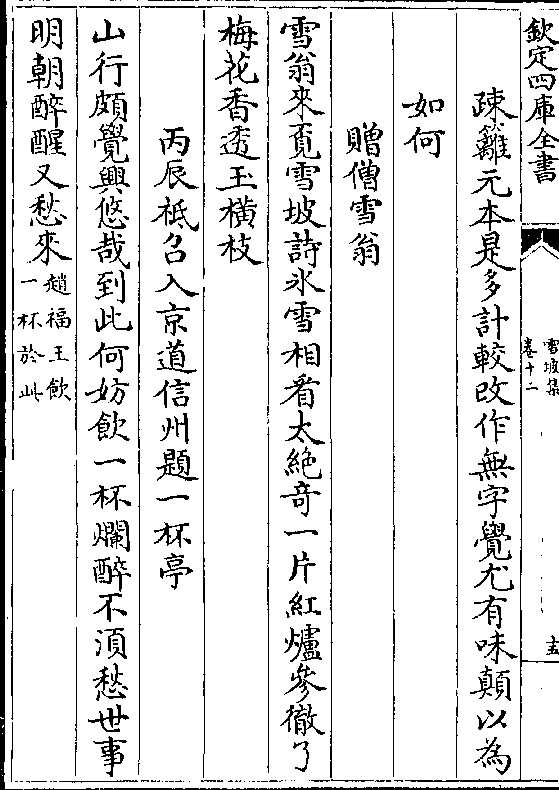 欽定四庫全書
雪坡集
卷十二
疎籬元本是多計較改作無字覺尤有味顛以為
如何
贈僧雪翁
雪翁來覓雪坡詩氷雪相看太絶竒一片紅爐參徹了
梅花香透玉橫枝
丙辰祗召入京道信州題一杯亭
山行頗覺興悠哉到此何妨飲一杯爛醉不須愁世事
明朝醉醒又愁來
趙福王飲
一杯於此